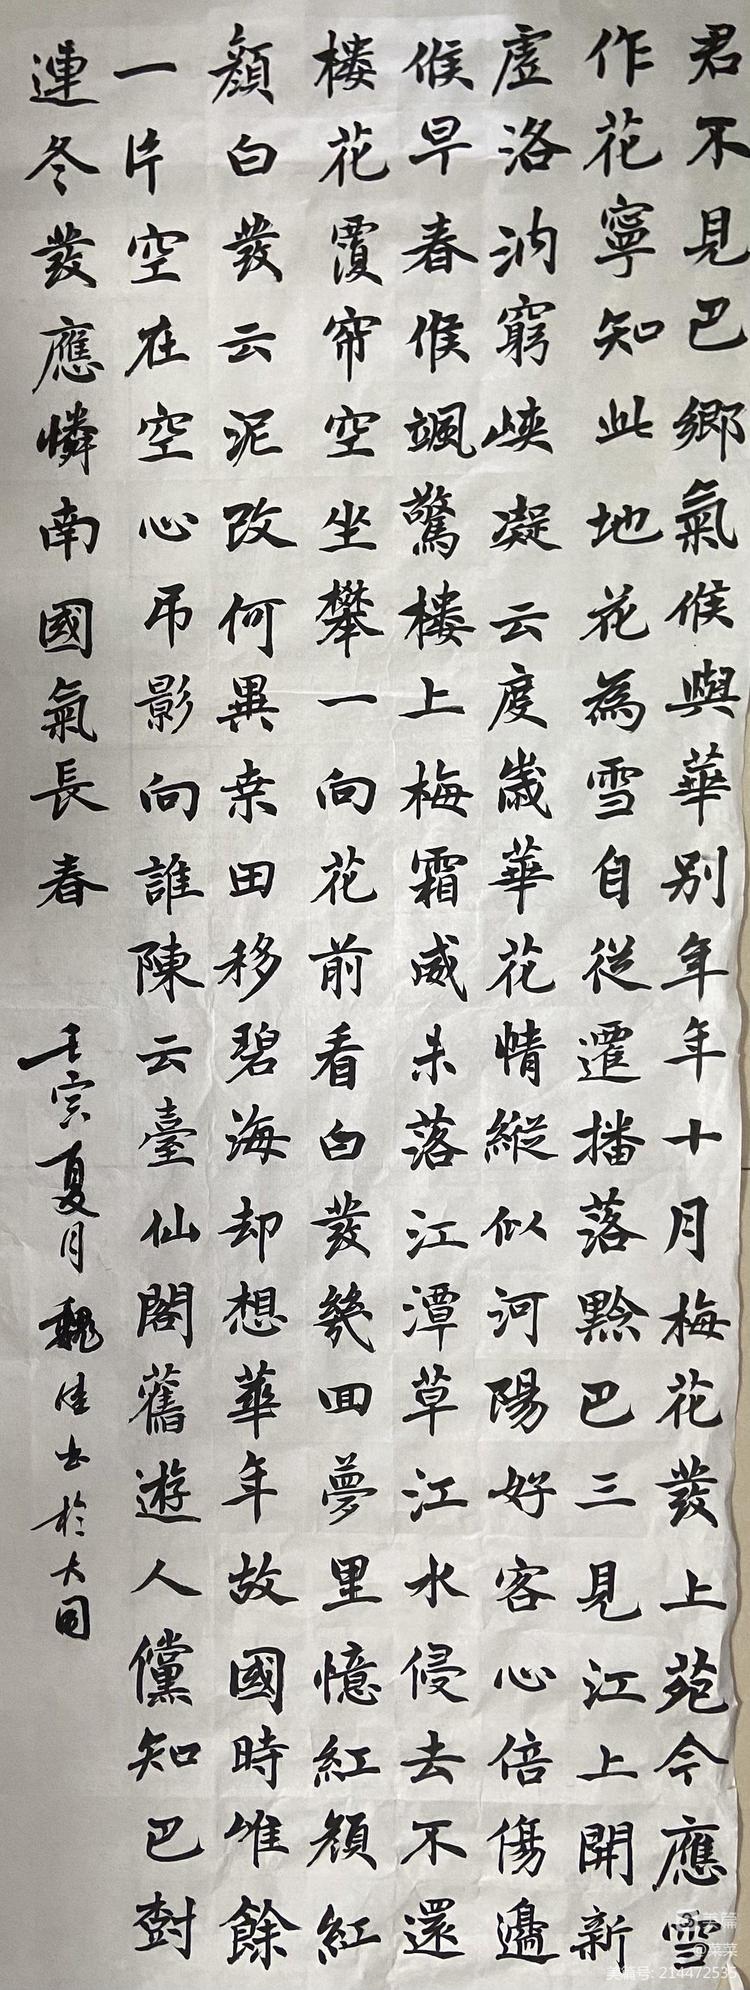 君不見巴鄉氣候與華別年年十月梅花發上苑今應雪
作花寧知此地花為雪自從遷播落黔巴三見江上開新
虛洛汭窮峽凝云度歲華花情縱似河陽好客心倍傷邊
候早春候颯驚樓上梅霜威未落江潭草江水侵去不還
樓花覆帘空坐攀一向花前看白發幾回夢里憶紅顏紅
顏白發云泥改何異桒田移碧海却想華年故國時惟餘
一片空在空心吊影向誰陳云臺仙閣舊遊人儻知巴樹
連冬發應憐南國氣長春
壬寅夏月魏佳书於大同
美篇
@菜菜
美篇号: 214472535